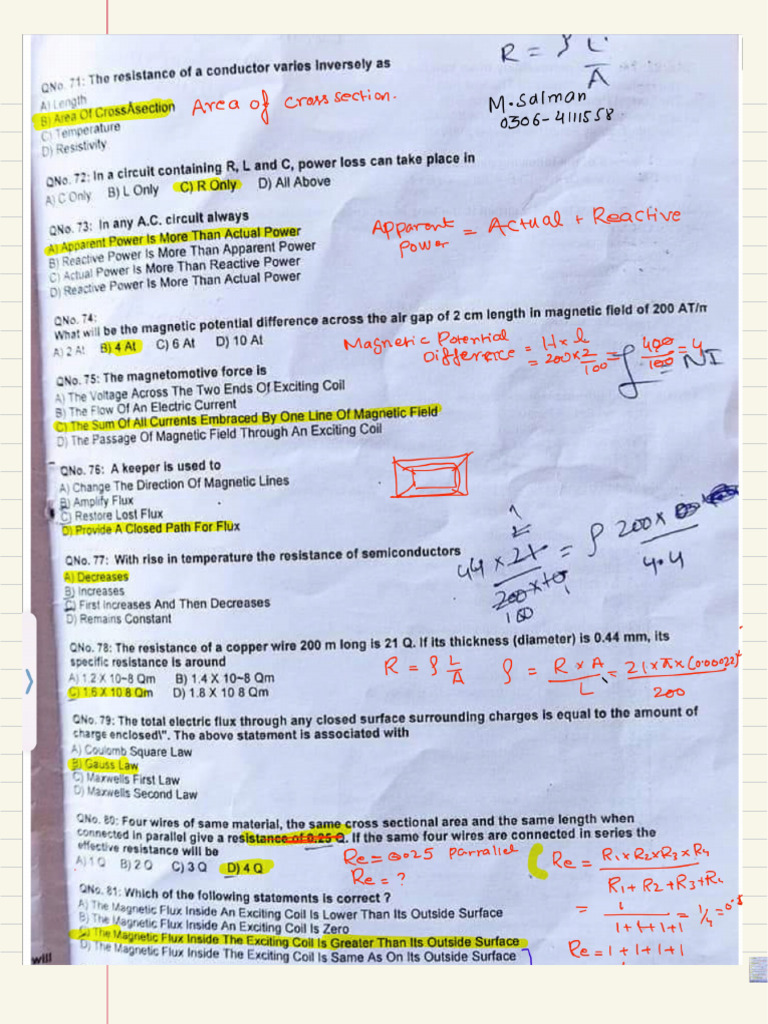 R = ρ L / A
QNo. 71: The resistance of a conductor varies inversely as
A) Length
B) Area Of CrossAsection
Area of cross section.
C) Temperature
D) Resistivity
M.Salman
0306-4111558
QNo. 72: In a circuit containing R, L and C, power loss can take place in
A) C Only B) L Only C) R Only D) All Above
QNo. 73: In any A.C. circuit always
A) Apparent Power Is More Than Actual Power
B) Reactive Power Is More Than Apparent Power
C) Actual Power Is More Than Reactive Power
D) Reactive Power Is More Than Actual Power
Apparent Power = Actual + Reactive
QNo. 74:
What will be the magnetic potential difference across the air gap of 2 cm length in magnetic field of 200 AT/m
A) 2 At B) 4 At C) 6 At D) 10 At
Magnetic Potential Difference = H x l
= 200 x 2/100 = 400/100 = 4
= NI
QNo. 75: The magnetomotive force is
A) The Voltage Across The Two Ends Of Exciting Coil
B) The Flow Of An Electric Current
C) The Sum Of All Currents Embraced By One Line Of Magnetic Field
D) The Passage Of Magnetic Field Through An Exciting Coil
QNo. 76: A keeper is used to
A) Change The Direction Of Magnetic Lines
B) Amplify Flux
C) Restore Lost Flux
D) Provide A Closed Path For Flux
QNo. 77: With rise in temperature the resistance of semiconductors
A) Decreases
B) Increases
C) First Increases And Then Decreases
D) Remains Constant
= ρ 200x
4.4
QNo. 78: The resistance of a copper wire 200 m long is 21 Q. If its thickness (diameter) is 0.44 mm, its
specific resistance is around
A) 1.2 X 10~8 Qm B) 1.4 X 10~8 Qm
C) 1.6 X 10 8 Qm D) 1.8 X 10 8 Qm
R = ρ L/A ρ = R x A / L = 21 x π x (0.00022)² / 200
QNo. 79: The total electric flux through any closed surface surrounding charges is equal to the amount of
charge enclosed\". The above statement is associated with
A) Coulomb Square Law
B) Gauss Law
C) Maxwells First Law
D) Maxwells Second Law
QNo. 80: Four wires of same material, the same cross sectional area and the same length when
connected in parallel give a resistance of 0.25 Q. If the same four wires are connected in series the
effective resistance will be
A) 1 Q B) 2 Q C) 3 Q D) 4 Q
Re = 0.025 Parrallel
Re = ?
Re = R1xR2xR3xR4 / R1+R2+R3+R4
= 1 / 1+1+1+1 = 1/4
Re = 1+1+1+1
QNo. 81: Which of the following statements is correct ?
A) The Magnetic Flux Inside An Exciting Coil Is Lower Than Its Outside Surface
B) The Magnetic Flux Inside An Exciting Coil Is Zero
C) The Magnetic Flux Inside The Exciting Coil Is Greater Than Its Outside Surface
D) The Magnetic Flux Inside The Exciting Coil Is Same As On Its Outside Surface
will